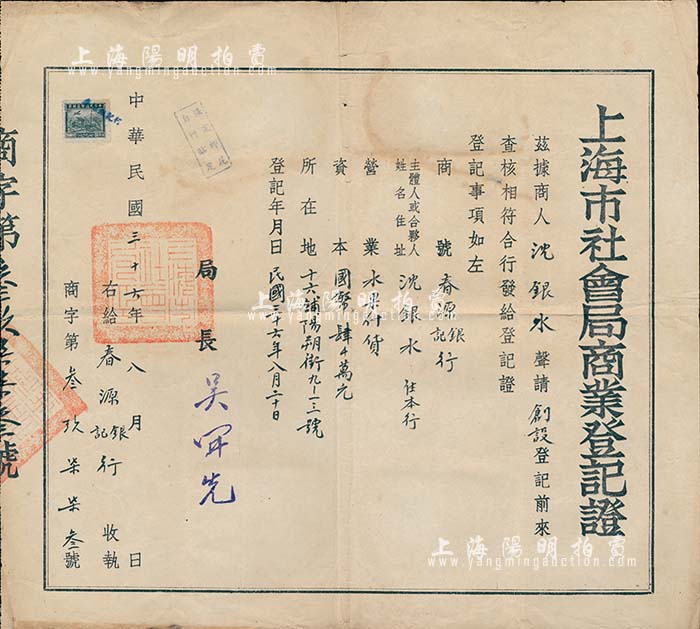 上海市社會局商業登記證
茲據商人沈銀水聲請創設登記前來
查核相符合行發給登記證
登記事項如左
商號 春源銀記行
主體人或合夥人姓名住址 沈銀水 住本行
營業 水菓什貨
資本 國幣肆千萬元
所在地 十六鋪陽朔街九一三號
登記年月日 民國三十六年八月二十日
局長 吳開先
右給春源銀記行收執
商字第叁玖柒柒叁號
中華民國三十六年八月 日
商字第叁玖柒柒叁號
上海陽明拍賣
www.yangmingauction.com
上海陽明拍賣
www.yangmingauction.com
上海陽明拍賣
www.yangmingauction.com